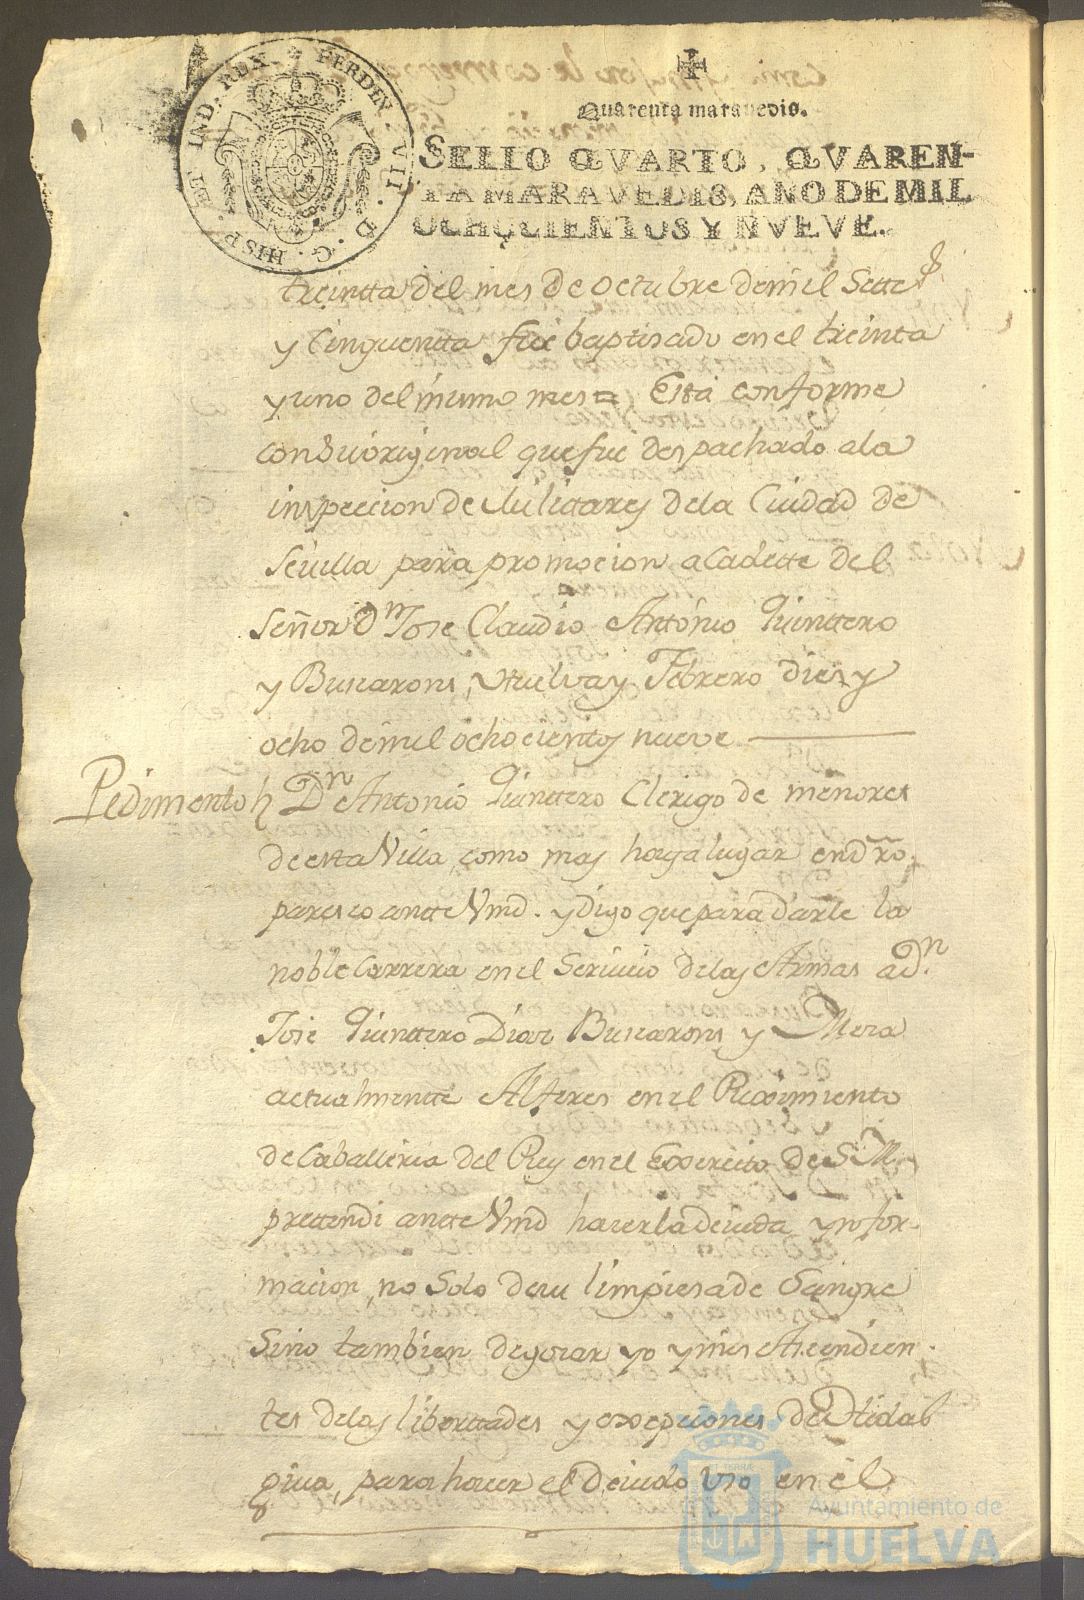 HISP. ET. IND. REX. FERDIN. VII. D. G.
Quarenta maravedis.
SELLO QVARTO, QVAREN-
TA MARAVEDIS, AÑO DE MIL
OCHOCIENTOS Y NVEVE.
treintta del mes de octubre demil Sette
y Cinquentta fue baptisado en el treinta
y uno del mismo mes = Está conforme
con su original que fue despachado ala
inspeccion de Militares dela Ciudad de
Sevilla para promocion a Cadette del
Señor Dn Jose Claudio António Quinttero
y Buscarons, Huelva y Febrero dies y
ocho demil ochocientos nueve
Pedimento Dn Antonio Quinttero Clerigo de menores
de esta Villa, como mas haya lugar en dro.
paresco antte Vmd. y digo que para darle la
noble Carrera en el Servicio delas Armas a Dn.
Jose Quinttero Díaz Buscarons y Mora
actualmentte Alferes en el Reximiento
de Caballeria del Rey en el Exercito de S. M.
prettendi antte Vmd hacer la devida ynfor-
macion, no Solo de su limpiesa de Sangre
Sino tambien de gosar yo y mis Ascendien-
tes delas liberttades y exepciones de Hidal
guia, para hacer el devido uso en el
ET TERRÆ
Ayuntamiento de
HUELVA